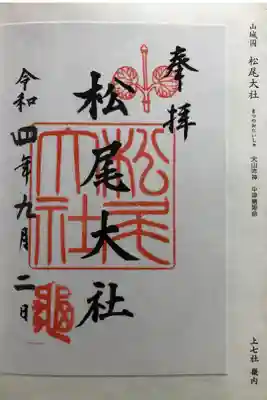 山城国 松尾大社
まつのおたいしゃ
大山咋神 中津島姫命
上七社 畿内
奉拝
松尾大社
松尾大社
令和四年九月二日